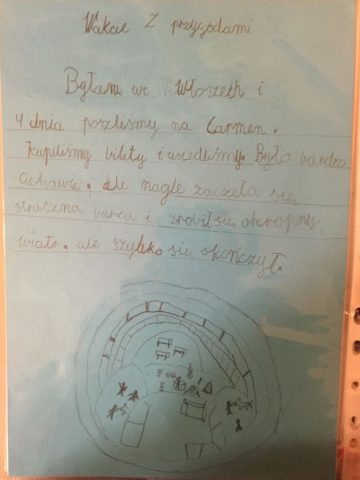 Wakcie Z przygodami
Byłam we Włoszech i
4 dnia poszliśmy na Carmen.
Kupiliśmy bilety i usiedliśmy. Było bardzo
ciekawie, ale nagle zaczęła się
straszna burza i zrobił się okropny
wiatr. ale szybko się skończył.